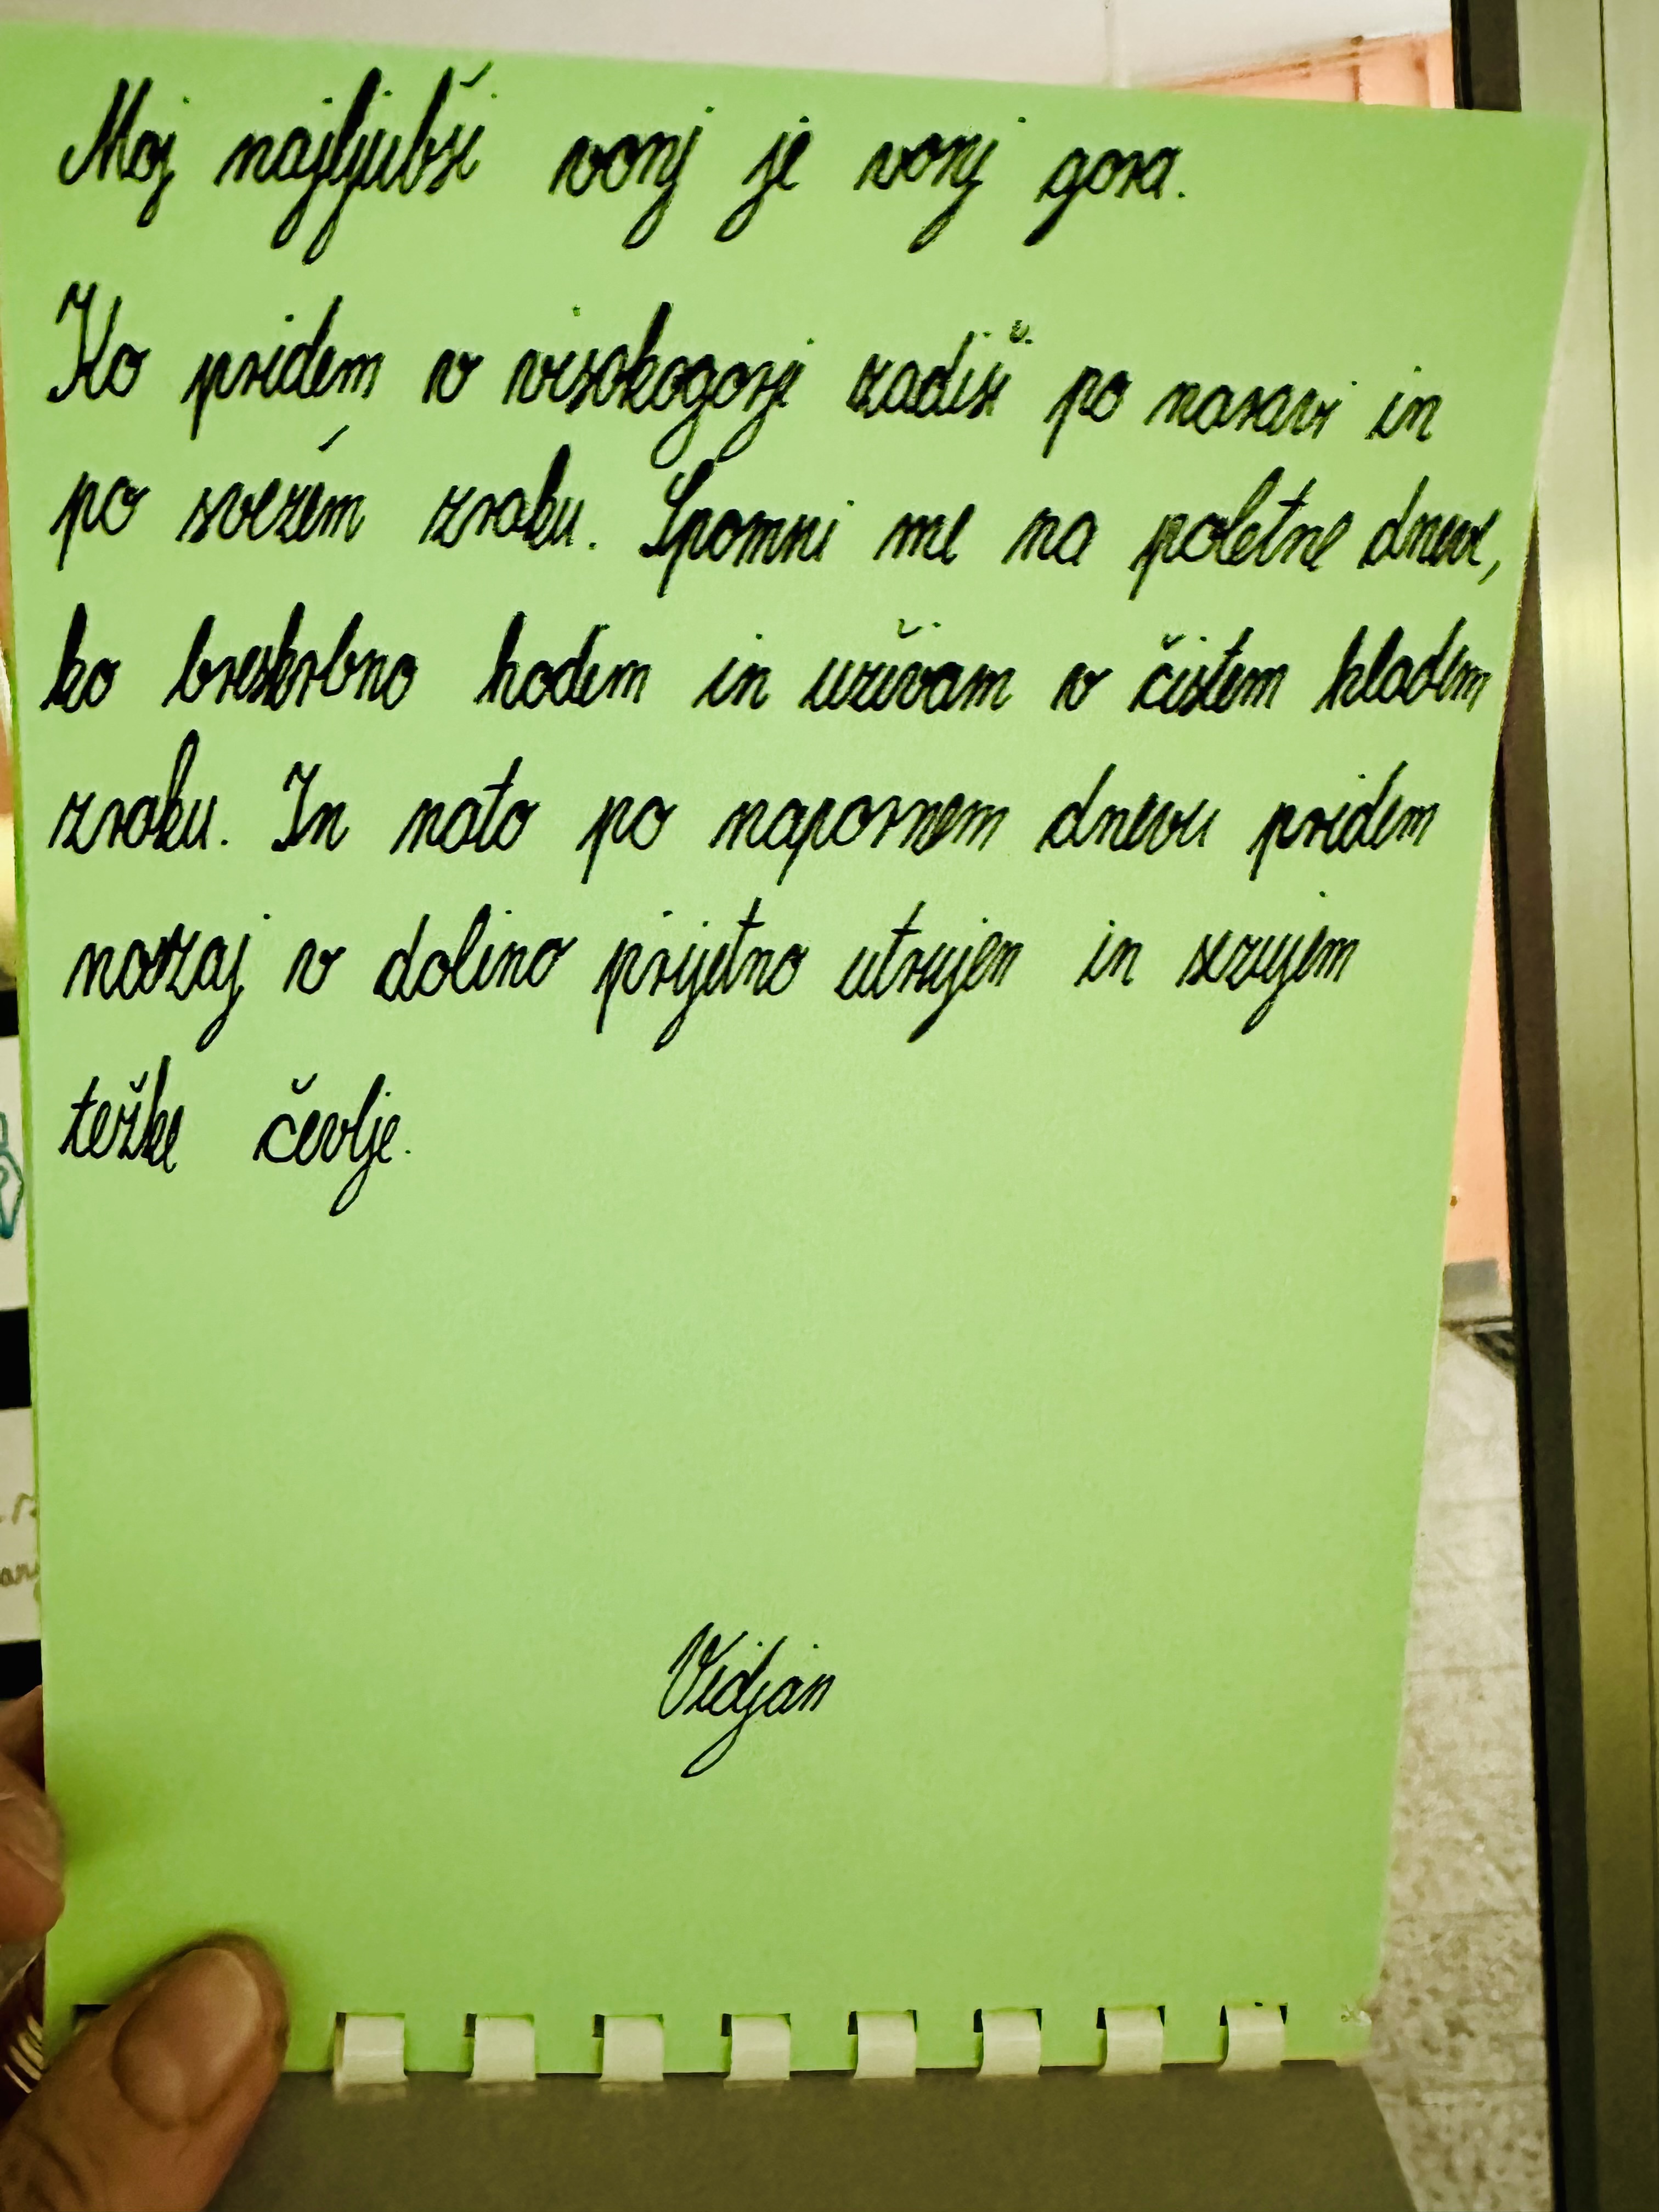 Moj najljubši vonj je vonj gora.
Ko pridem v visokogorje zadiši po naravi in
po svežem zraku. Spomni me na poletne dneve,
ko brezskrbno hodim in uživam v čistem hladnem
zraku. In nato po napornem dnevu pridem
nazaj v dolino prijetno utrujen in sezujem
težke čevlje.
Vidjan